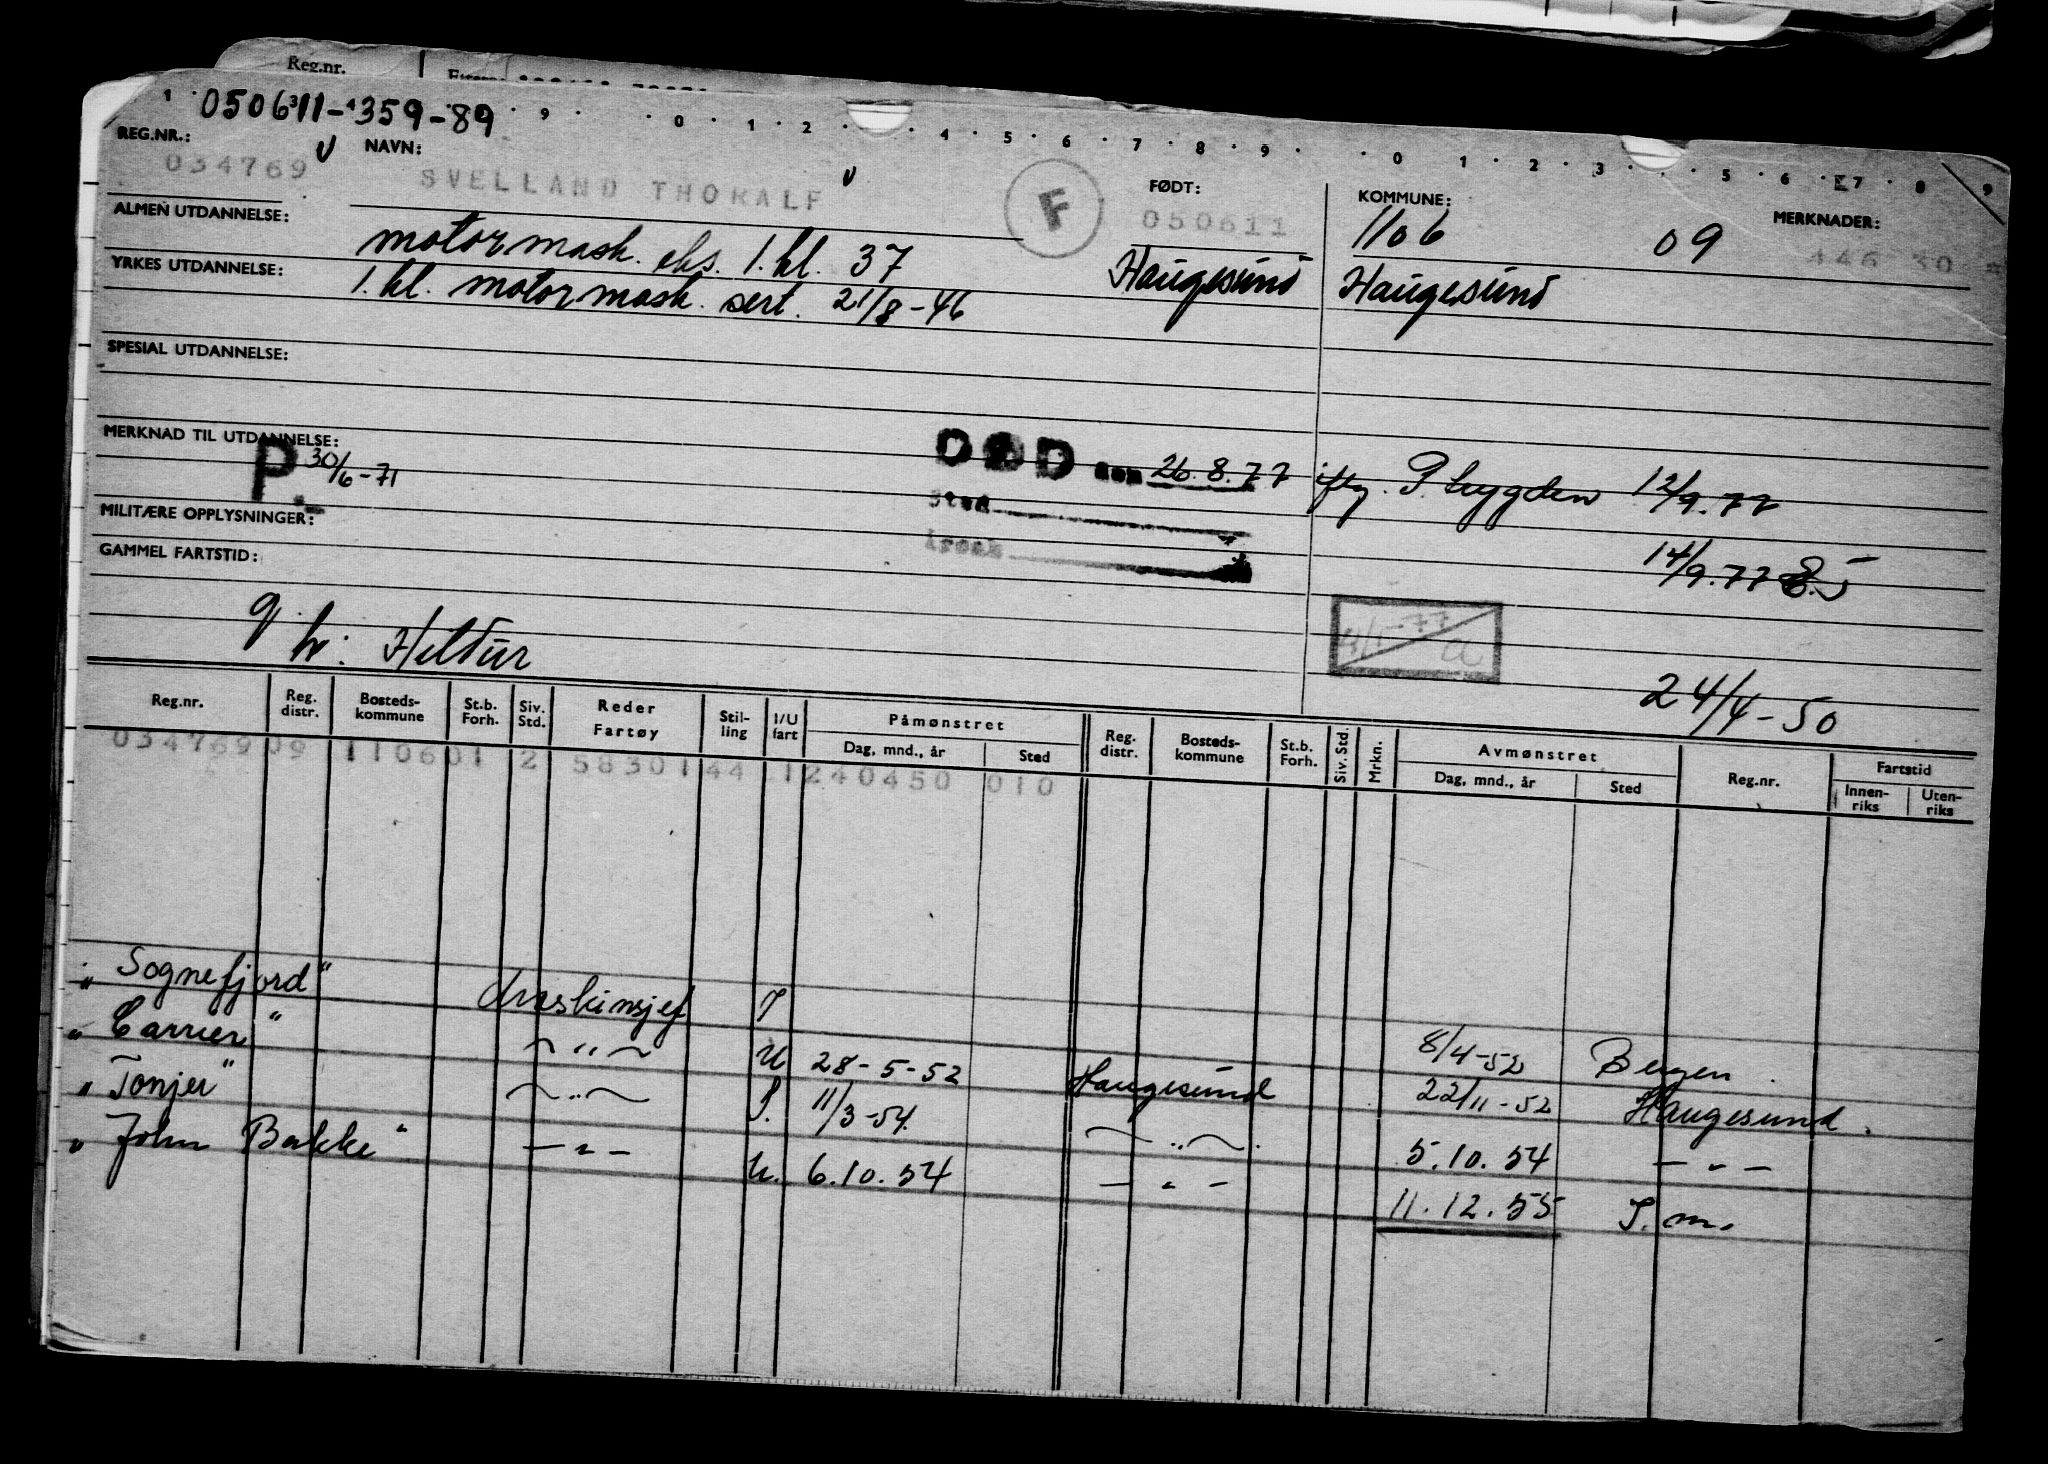 Reg.nr.
050611-359-89
REG.NR.: NAVN: FØDT: KOMMUNE: MERKNADER:
034769 SVELLAND THORALF F 050611 1106 09 446 30
ALMEN UTDANNELSE: motormask. eks. 1. kl. 37 Haugesund Haugesund
YRKES UTDANNELSE: 1. kl. motormask. sert. 21/8-46
SPESIAL UTDANNELSE:
MERKNAD TIL UTDANNELSE:
P. 30/6-71 DØD den 26.8.77 iflg. P. trygden 12/9.77
Sted
MILITÆRE OPPLYSNINGER:
Årsak 14/9.77
GAMMEL FARTSTID:
24/4-50
Reg.nr. Reg. distr. Bosteds-kommune St.b. Forh. Siv. Std. Reder Fartøy Stil-ling I/U fart Påmønstret Dag, mnd., år Sted Reg. distr. Bosteds-kommune St.b. Forh. Siv. Std. Mrkn. Avmønstret Dag, mnd., år Sted Reg.nr. Fartstid Innen-riks Uten-riks
034769 09 1106 01 2 58301 44 1 240450 010
"Sognefjord" maskinsjef I 8/4-52 Bergen
"Carrier" ~ " ~ U 28-5-52 Haugesund 22/11-52 Haugesund.
"Tonjer" ~ " ~ I. 11/3-54. ~ " ~. 5.10.54 — " —
"John Bakke" — " — U. 6.10.54 — " — 11.12.55 S.m.